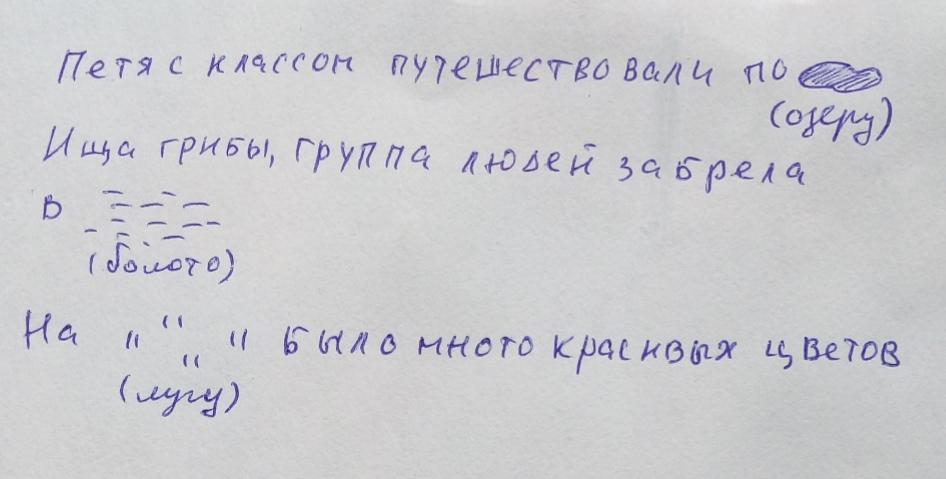 Петя с классом путешествовали по
(озеру)
Ища грибы, группа людей забрела
в
(болото)
На " " " " было много красивых цветов
(лугу)